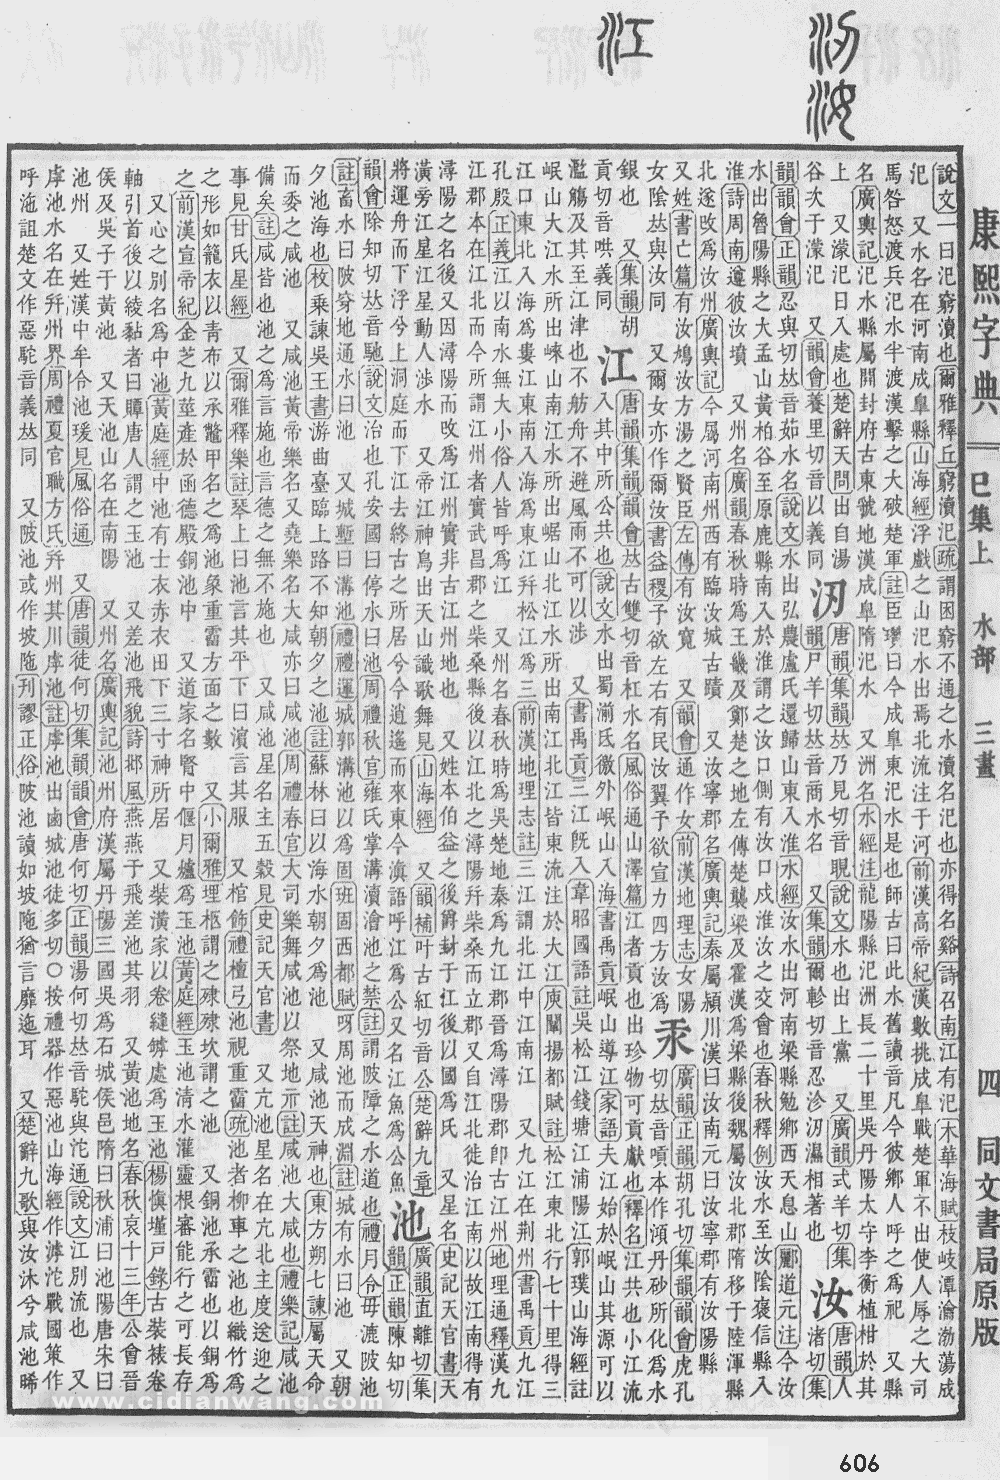 康熙字典 巳集上 水部 三畫 四 同文書局原版
說文一曰汜窮瀆也爾雅釋丘窮瀆汜疏謂困窮不通之水瀆名汜也亦得名谿詩召南江有汜木華海賦枝岐潭瀹渤蕩成
汜 又水名在河南成臯縣山海經浮戲之山汜水出焉北流注于河前漢高帝紀漢數挑成臯戰楚軍不出使人辱之大司
馬咎怒渡兵汜水半渡漢擊之大破楚軍註臣瓚曰今成臯東汜水是也師古曰此水舊讀音凡今彼鄉人呼之爲祀 又縣
名廣輿記汜水縣屬開封府古東虢地漢成臯隋汜水 又洲名水經注龍陽縣汜洲長二十里吳丹陽太守李衡植柑於其
上 又濛汜日入處也楚辭天問出自湯
谷次于濛汜 又韻會養里切音以義同
㲽
唐韻集韻𠀤乃見切音晛說文水也出上黨 又廣韻式羊切集
韻尸羊切𠀤音商水名 又集韻爾軫切音忍沴㲽濕相著也
汝
唐韻人渚切集
韻韻會正韻忍與切𠀤音茹水名說文水出弘農盧氏還歸山東入淮水經汝水出河南梁縣勉鄉西天息山酈道元注今汝
水出魯陽縣之大盂山黃柏谷至原鹿縣南入於淮謂之汝口側有汝口戍淮汝之交會也春秋釋例汝水至汝陰褒信縣入
淮詩周南遵彼汝墳 又州名廣韻春秋時爲王畿及鄭楚之地左傳楚襲梁及霍漢爲梁縣後魏屬汝北郡隋移于陸渾縣
北遂改爲汝州廣輿記今屬河南州西有臨汝城古蹟 又汝寧郡名廣輿記秦屬潁川漢曰汝南元曰汝寧郡有汝陽縣
又姓書亡篇有汝鳩汝方湯之賢臣左傳有汝寬 又韻會通作女前漢地理志女陽
女陰𠀤與汝同 又爾女亦作爾汝書益稷予欲左右有民汝翼予欲宣力四方汝爲
汞
廣韻正韻胡孔切集韻韻會虎孔
切𠀤音嗊本作澒丹砂所化爲水
銀也 又集韻胡
貢切音哄義同
江
唐韻集韻韻會𠀤古雙切音杠水名風俗通山澤篇江者貢也出珍物可貢獻也釋名江共也小江流
入其中所公共也說文水出蜀湔氐徼外岷山入海書禹貢岷山導江家語夫江始於岷山其源可以
濫觴及其至江津也不舫舟不避風雨不可以涉 又書禹貢三江旣入韋昭國語註吳松江錢塘江浦陽江郭璞山海經註
岷山大江水所出崍山南江水所出崌山北江水所出南江北江皆東流注於大江庾闡揚都賦註松江東北行七十里得三
江口東北入海爲婁江東南入海爲東江幷松江爲三前漢地理志註三江謂北江中江南江 又九江在荆州書禹貢九
江孔殷正義江以南水無大小俗人皆呼爲江 又州名春秋時爲吳楚地秦爲九江郡晉爲潯陽郡卽古江州地理通釋漢九
江郡本在江北而今所謂江州者實武昌郡之柴桑縣後以江北之潯陽幷柴桑而立郡又自江北徙治江南以故江南得有
潯陽之名後又因潯陽而改爲江州實非古江州地也 又姓本伯益之後爵封于江後以國爲氏 又星名史記天官書天
潢旁江星江星動人涉水 又帝江神鳥出天山識歌舞見山海經 又韻補叶古紅切音公楚辭九章
將運舟而下浮兮上洞庭而下江去終古之所居兮今逍遙而來東今滇語呼江爲公又名江魚爲公魚
池
廣韻直離切集韻正韻陳知切
韻會除知切𠀤音馳說文治也孔安國曰停水曰池周禮秋官雍氏掌溝瀆澮池之禁註謂陂障之水道也禮月令毋漉陂池
註畜水曰陂穿地通水曰池 又城塹曰溝池禮禮運城郭溝池以爲固班固西都賦呀周池而成淵註城有水曰池 又朝
夕池海也枚乘諫吳王書游曲臺臨上路不知朝夕之池註蘇林曰以海水朝夕爲池 又咸池天神也東方朔七諫屬天命
而委之咸池 又咸池黃帝樂名又堯樂名大咸亦曰咸池周禮春官大司樂舞咸池以祭地示註咸池大咸也禮樂記咸池
備矣註咸皆也池之爲言施也言德之無不施也 又咸池星名主五穀見史記天官書 又亢池星名在亢北主度送迎之
事見甘氏星經 又爾雅釋樂註琴上曰池言其平下曰濱言其服 又棺飾禮檀弓池視重霤疏池者柳車之池也織竹爲
之形如籠衣以靑布以承鼈甲名之爲池象重霤方面之數 又小爾雅埋柩謂之殔殔坎謂之池 又銅池承霤也以銅爲
之前漢宣帝紀金芝九莖產於函德殿銅池中 又道家名腎中偃月爐爲玉池黃庭經玉池淸水灌靈根審能行之可長存
又心之別名爲中池黃庭經中池有士衣赤衣田下三寸神所居 又裝潢家以卷縫罅處爲玉池楊愼墐戸錄古裝裱卷
軸引首後以綾黏者曰贉唐人謂之玉池 又差池飛貌詩邶風燕燕于飛差池其羽 又黃池地名春秋哀十三年公會晉
侯及吳子于黃池 又天池山名在南陽 又州名廣輿記池州府漢屬丹陽三國吳爲石城侯邑隋曰秋浦曰池陽唐宋曰
池州 又姓漢中牟令池瑗見風俗通 又唐韻徒何切集韻韻會唐何切正韻湯何切𠀤音駝與沱通說文江別流也 又
虖池水名在幷州界周禮夏官職方氏幷州其川虖池註虖池出鹵城池徒多切○按禮器作惡池山海經作滹沱戰國策作
呼沲詛楚文作惡駝音義𠀤同 又陂池或作坡陁刊謬正俗陂池讀如坡陁猶言靡迤耳 又楚辭九歌與汝沐兮咸池晞
www.cidianwang.com
606